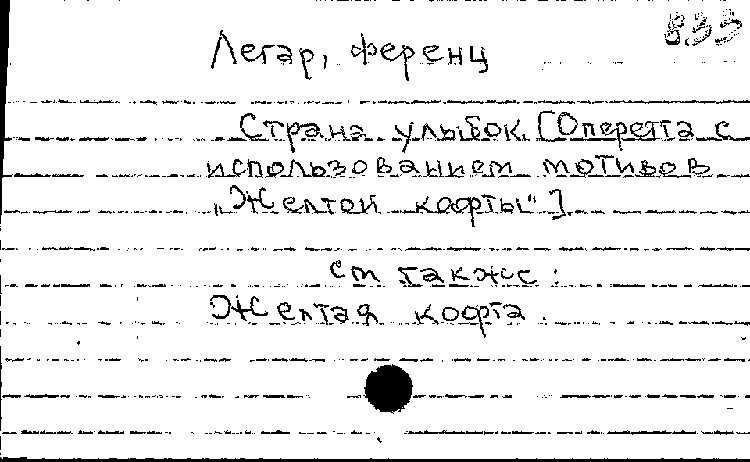 833
Легар, Ференц
Страна улыбок. [Оперетта с
использованием мотивов
„Желтой кофты“]
см также:
Желтая кофта.